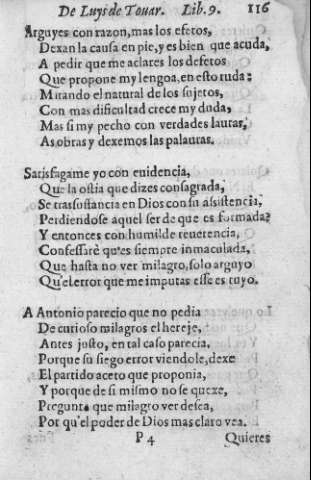 De Luys de Touar. Lib. 9. 116
Arguyes con razon, mas los efetos,
Dexan la causa en pie, y es bien que acuda,
A pedir que me aclares los defetos
Que propone my lengoa, en esto ruda:
Mirando el natural de los sujetos,
Con mas dificultad crece my duda,
Mas si my pecho con verdades lauras,
As obras y dexemos las palauras.
Satisfagame yo con euidencia,
Que la ostia que dizes consagrada,
Se trassustancia en Dios con su asistencia,
Perdiendose aquel ser de que es formada?
Y entonces con humilde reuerencia,
Confessarè qu'es siempre inmaculada,
Que hasta no ver milagro, solo arguyo
Qu'el error que me imputas esse es tuyo.
A Antonio parecio que no pedia
De curioso milagros el hereje,
Antes josto, en tal caso parecia,
Porque su siego error viendole, dexe
El partido aceto que proponia,
Y porque de si mismo no se quexe,
Pregunta que milagro ver desea,
Por qu'el poder de Dios mas claro vea.
P 4 Quieres